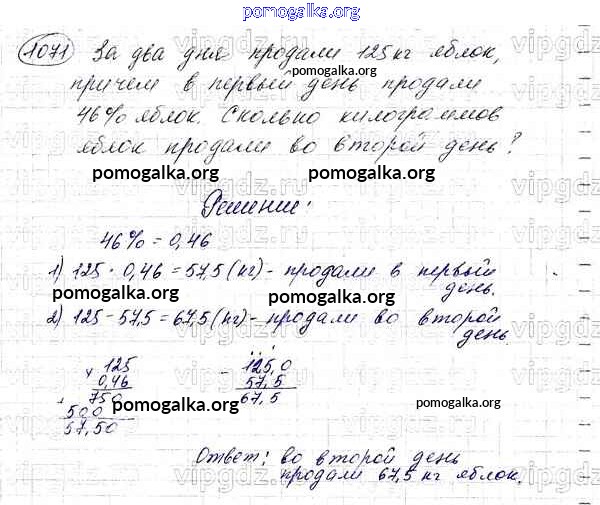 pomogalka.org
1071 За два дня продали 125 кг яблок,
причем в первый день продали
pomogalka.org
46% яблок. Сколько килограммов
яблок продали во второй день?
pomogalka.org pomogalka.org
Решение:
46% = 0,46
1) 125 · 0,46 = 57,5 (кг) - продали в первый
день.
pomogalka.org pomogalka.org
2) 125 - 57,5 = 67,5 (кг) - продали во второй
день
pomogalka.org
× 125 - 125,0
0,46 57,5
+ 750 67,5
500
pomogalka.org pomogalka.org
57,50
Ответ: во второй день
продали 67,5 кг яблок.
pomogalka.org
vipgdz.ru